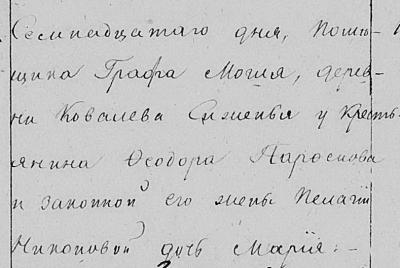 Семнадцатаго дня, помѣ-
щика Графа Мошня, дерев-
ни Ковалева Сименья у Кресть-
янина Ѳеодора Параскова
и законной его жены Пелагіи
Никоновой дочь Марія.-